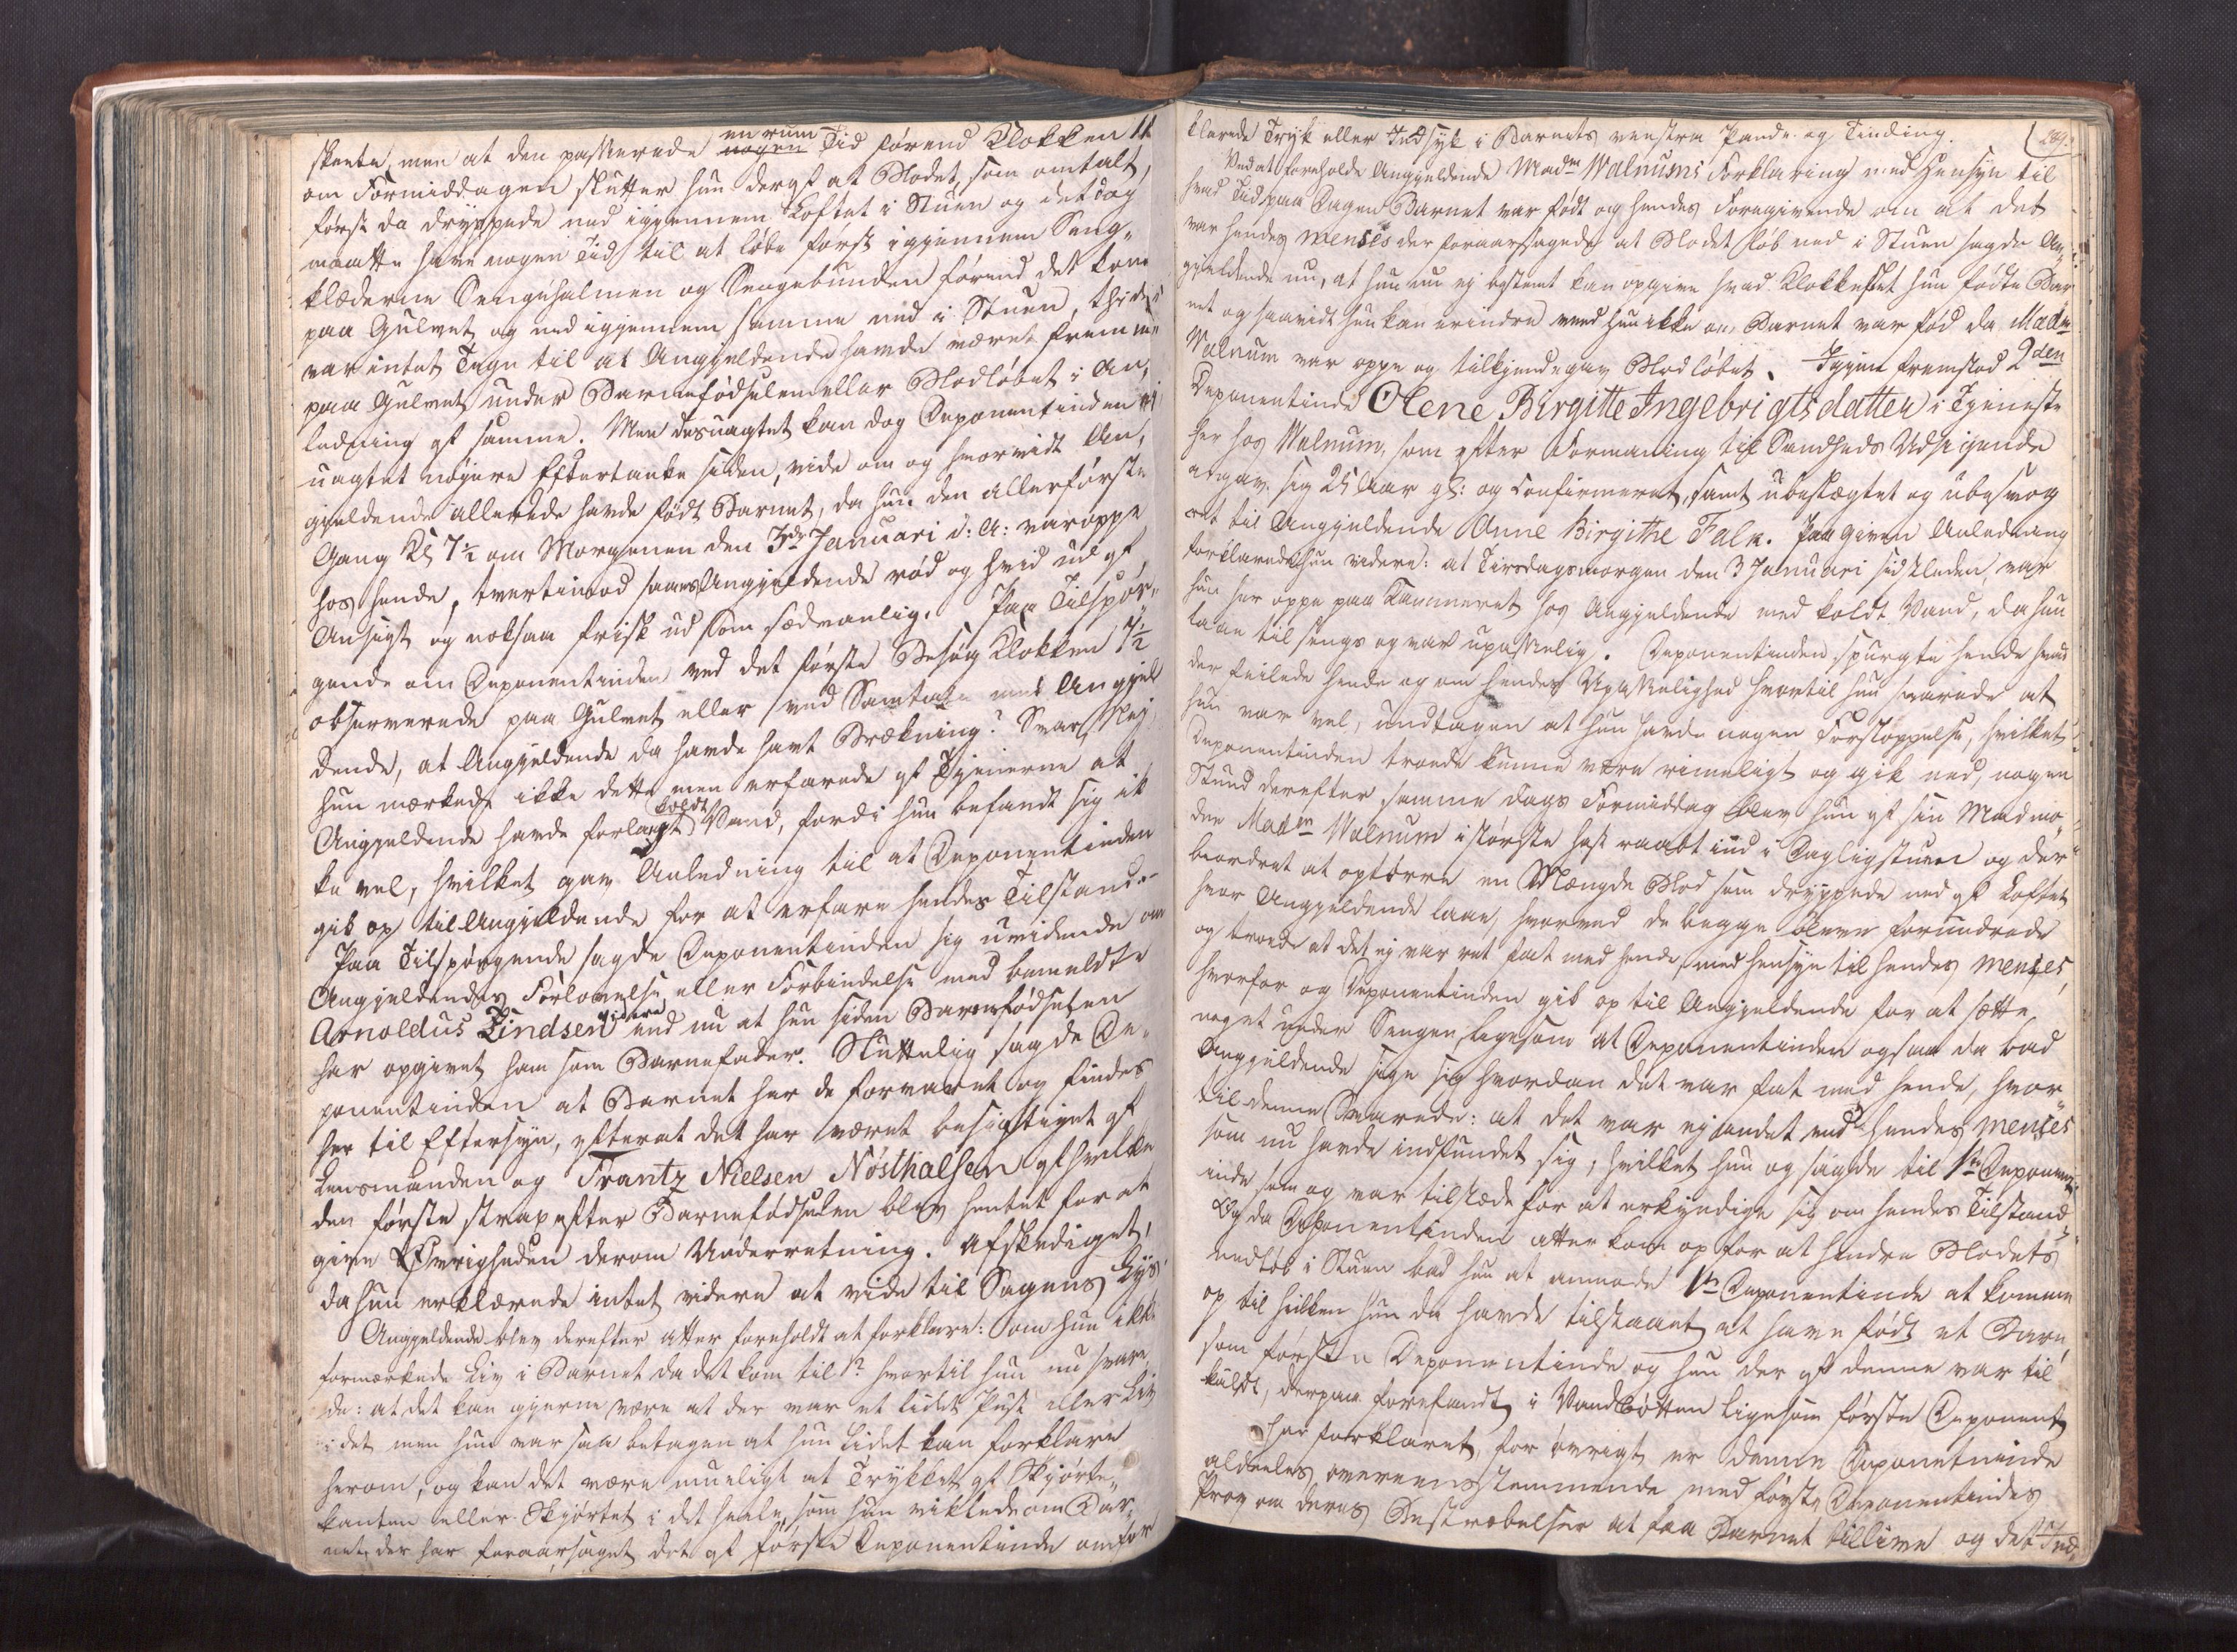 skeete, men at den passerede en rum Tid førend Klokken 11
om Formiddagen slutter hun deraf at Blodet, som omtalt,
først da dryppede ned igjennem Loftet i Stuen og det dog
maatte have nogen Tid til at løbe først igjennem Seng„
klæderne Sengehalmen og Sengebunden førend det kom
paa Gulvet og ned igjennem samme ned i Stuen, thi der
var intet Tegn til at Angjeldende havde været fremme
paa Gulvet under Barnefødselen eller Blodløbet i An„
ledning af samme. Men desuagtet kan dog Deponentinden ei
uagtet nøjere Eftertanke siden, vide om og hvorvidt An„
gjeldende allerede havde født Barnet, da hun den allerførste
Gang Kl 7½ om Morgenen den 3die Januari d: A: var oppe
hos hende, tvertimod saaes Angjeldende rød og hvid ud af
Ansigt og noksaa frisk ud som sædvanlig. Paa Tilspør„
gende om Deponentinden ved det første Besøg Klokken 7½
observerede paa Gulvet eller ved Samtale med Angjel
dende, at Angjeldende da havde havt Brækning? Svar, Nej
hun mærkede ikke dette men erfarede af Tjenerne at
Angjeldende havde forlangt koldt Vand, fordi hun befandt sig ik
ke vel, hvilket gav Anledning til at Deponentinden
gik op til Angjeldende for at erfare hendes Tilstand.
Paa Tilspørgende sagde Deponentinden sig uvidende om
Angjeldendes Forlovelse eller Forbindelse med bemeldte
Arnoldus Lindsen videre end nu at hun siden Barnefødselen
har opgivet ham som Barnefader. Sluttelig sagde De„
ponentinden at Barnet her de forvaret og findes
her til Eftersyn, efterat det har været besigtiget af
Lensmanden og Frantz Nielsen Nøsthalsen af hvilke
den første strax efter Barnefødselen blev hentet for at
give Øvrigheden derom Underretning. Afskediget,
da hun erklærede intet videre at vide til Sagens Lys
Angjeldende blev derefter atter foreholdt at forklare: om hun ikke
formærkede Liv i Barnet da det kom til? hvortil hun nu svare
de: at det kan gjerne være at der var et lidet Pust eller Liv
i det men hun var saa betagen at hun lidet kan forklare
herom, og kan det være mueligt at Trykket af Skjørte„
kanten eller Skjørtet i det heele, som hun viklede om Bar„
net, der har foraarsaget det af første Deponentinde omfor
289.
klarede Tryk eller Indsyk i Barnets venstre Pande og Tinding.
Ved at foreholde Angjeldende Madm Walnums Forklaring med Hensyn til
hvad Tid paa Dagen Barnet var født og hendes Foregivende om at det
var hendes menses der foraarsagede at Blodet løb ned i Stuen sagde An„
gjeldende nu, at hun nu ej bestemt kan opgive hvad Klokkeslet hun fødte Bar
net og saavidt hun kan erindre veed hun ikke om Barnet var fød da Madm
Walnum var oppe og tilkjendegav Blodløbet. Igjen fremstod 2den
Deponentinde Olene Birgitte Ingebrigtsdatter i Tjeneste
her hos Walnum, som efter Formaning til Sandheds Udsigende
angav sig 25 Aar gl: og Confirmeret, samt ubeslægtet og ubesvog
ret til Angjeldende Anne Birgithe Falk. Paa given Anledning
forklarede hun videre: at Tirsdagsmorgen den 3 Januari sidstleden, var
hun her oppe paa Kammeret hos Angjeldende med koldt Vand, da hun
laae tilsengs og var upasselig. Deponentinden spurgte hende hvad
der feilede hende og om hendes Upasselighed hvortil hun svarede at
hun var vel, undtagen at hun havde nogen Forstoppelse, hvilket
Deponentinden troede kunne være rimeligt og gik ned, nogen
Stund derefter samme Dags Formiddag blev hun af sin Madmo„
der Madm Walnum i største Hast raabt ind i Dagligstuen og der
beordret at optørre en Mængde Blod som dryppede ned af Loftet
hvor Angjeldende laae, hvorved de begge bleve forundrede
og troede at det ej var ret fat med hende, med Hensyn til hendes menses,
hvorfor og Deponentinden gik op til Angjeldende for at sætte
noget under Sengen, ligesom at Deponentinden ogsaa da bad
Angjeldende sige sig hvordan det var fat med hende, hvor„
til denne svarede: at det var ej andet end hendes menses
som nu havde indfundet sig, hvilket hun og sagde til 1te Deponent
inde som og var tilstæde for at erkyndige sig om hendes Tilstand„
Og da Deponentinden atter kom op for at hindre Blodets
nedløb i Stuen bad hun at anmode 1te Deponentinde at komme
op til hvilken hun da havde tilstaaet at have født et Barn,
som første Deponentinde og hun der af denne var til
kaldt, derpaa forefandt i Vandbøtten ligesom første Deponent
har forklaret, for øvrigt er denne Deponentinde
aldeeles overeensstemmende med første Deponentindes
Prov om deres Bestræbelser at faa Barnet tillive og det Ind„